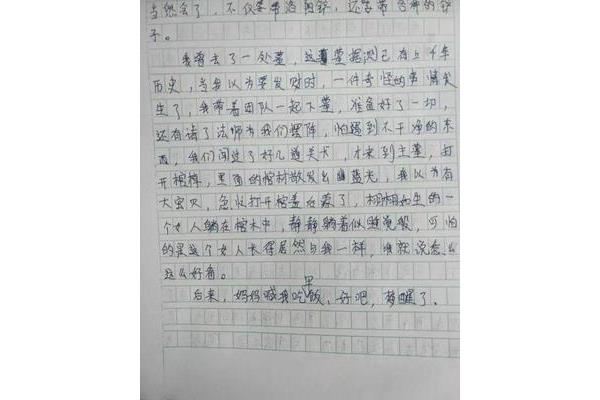 当然会了，不仅要带洛阳铲，还要带各种的铲
子。
我曾去了一处墓，这墓据测已有上千年
历史，当我以为要发财时，一件奇怪的事情发
生了，我带着团队一起下墓，准备好了一切，
还有请了法师为我们摆阵，怕遇到不干净的东
西，我们闯过了好几道关卡，才来到主墓，打
开棺椁，里面的棺材散发出蓝光，我以为有
大宝贝，急忙打开棺盖后蒙了，栩栩如生的一
个女人躺在棺木中，静静躺着似睡觉般，可怕
的是这个女人长得居然与我一样，难就说怎么
这么好看。
后来，妈妈喊我吃早饭，好吧，梦醒了。